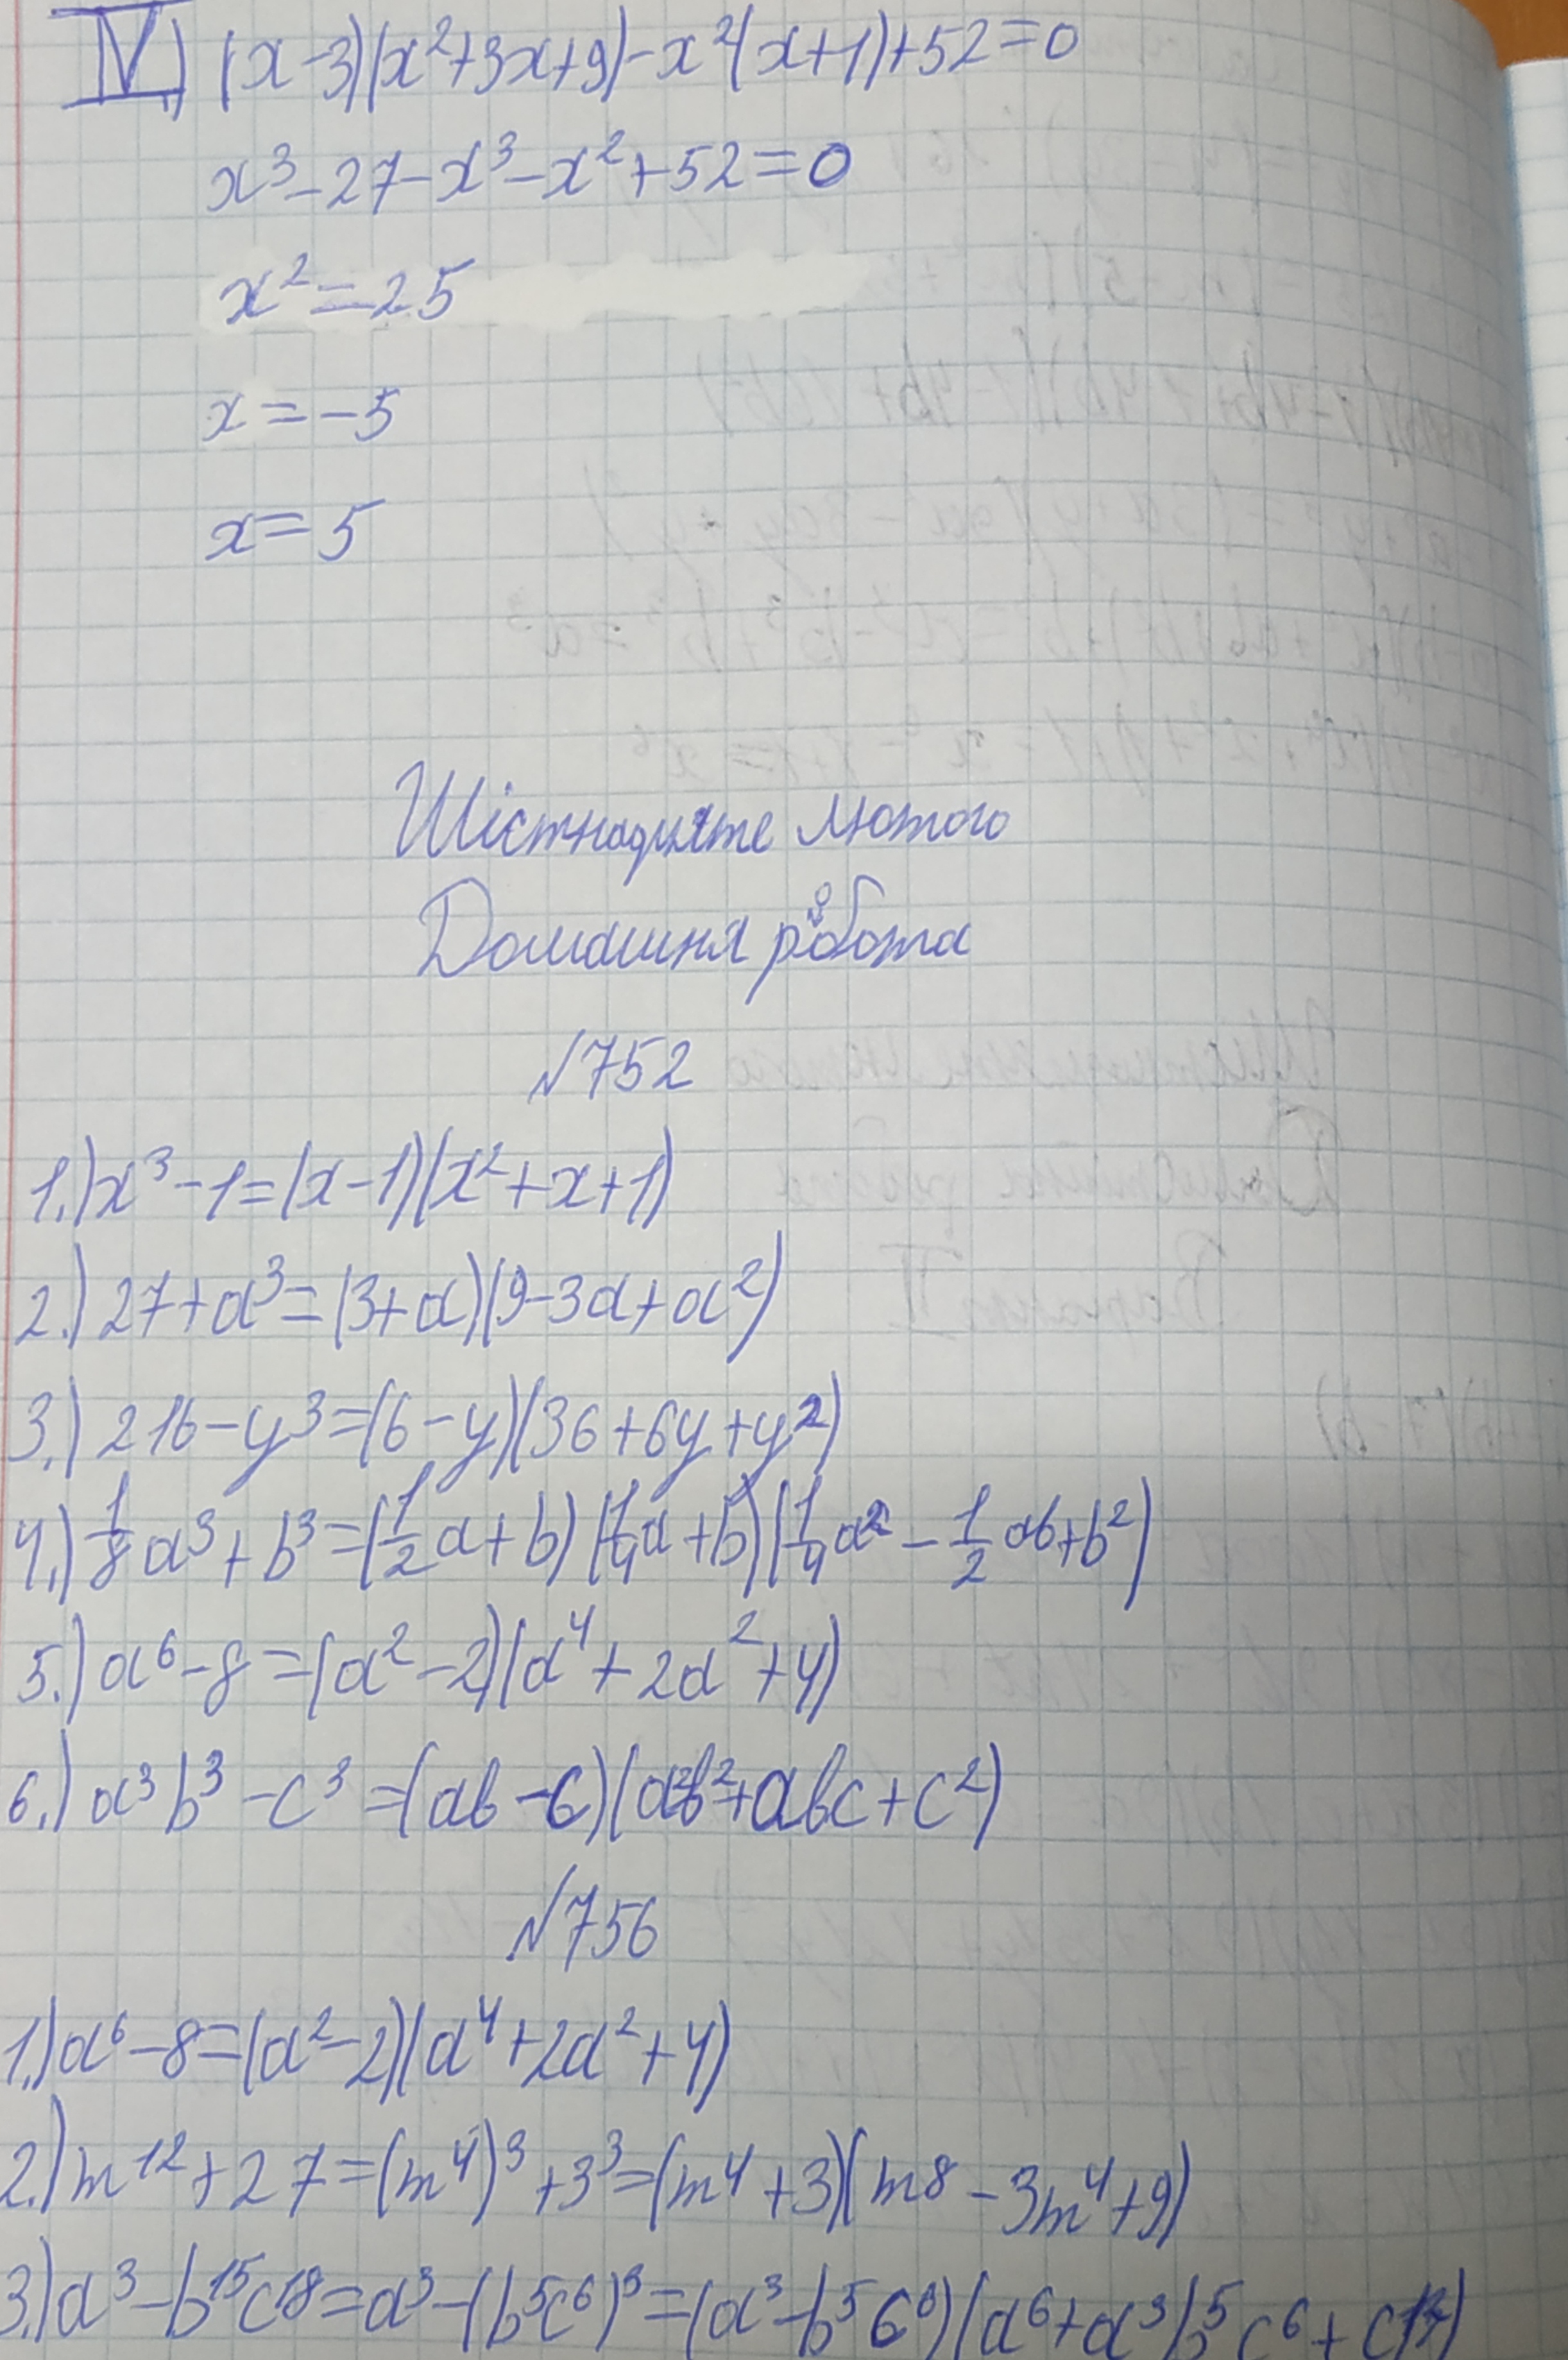 IV.) (x-3)(x²+3x+9)-x²(x+1)+52=0
x³-27-x³-x²+52=0
x²=25
x=-5
x=5
Шістнадцяте лютого
Домашня робота
№752
1.) x³-1=(x-1)(x²+x+1)
2.) 27+a³=(3+a)(9-3a+a²)
3.) 216-y³=(6-y)(36+6y+y²)
4.) 1/8a³+b³=(1/2a+b)(1/4a+b)(1/4a²-1/2ab+b²)
5.) a⁶-8=(a²-2)(a⁴+2a²+4)
6.) a³b³-c³=(ab-c)(a²b²+abc+c²)
№756
1.) a⁶-8=(a²-2)(a⁴+2a²+4)
2.) m¹²+27=(m⁴)³+3³=(m⁴+3)(m8-3m⁴+9)
3.) a³-b¹⁵c18=a³-(b⁵c⁶)³=(a³-b⁵c⁶)(a⁶+a³b⁵c⁶+